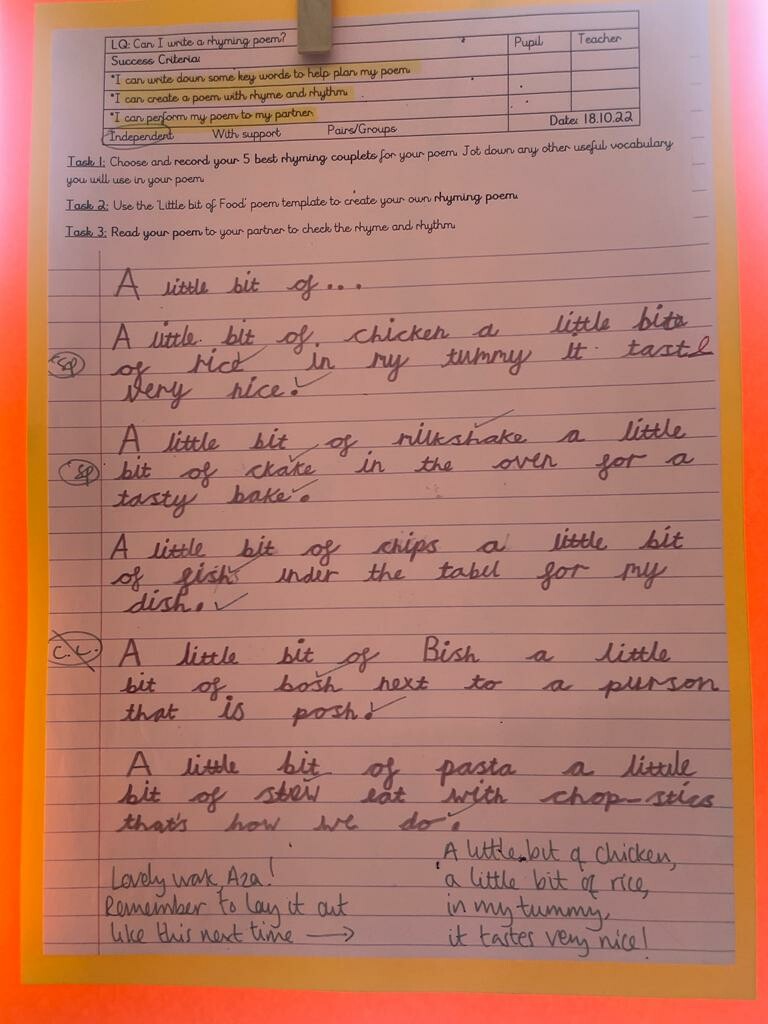 LQ: Can I write a rhyming poem?
Pupil
Teacher
Success Criteria:
*I can write down some key words to help plan my poem.
*I can create a poem with rhyme and rhythm.
*I can perform my poem to my partner
Independent With support Pairs/Groups
Date: 18.10.22
Task 1: Choose and record your 5 best rhyming couplets for your poem. Jot down any other useful vocabulary
you will use in your poem.
Task 2: Use the 'Little bit of Food' poem template to create your own rhyming poem.
Task 3: Read your poem to your partner to check the rhyme and rhythm.
A little bit of...
A little bit of chicken a little bit
sp of rice in my tummy it taste
very nice!
A little bit of milkshake a little
sp bit of ckake in the oven for a
tasty bake.
A little bit of chips a little bit
of fish under the tabel for my
dish.
C.L. A little bit of Bish a little
bit of bosh next to a purson
that is posh!
A little bit of pasta a little
bit of stew eat with chop-stics
that's how we do.
Lovely work, Aza!
Remember to lay it out
like this next time →
A little bit of chicken,
a little bit of rice,
in my tummy,
it tastes very nice!